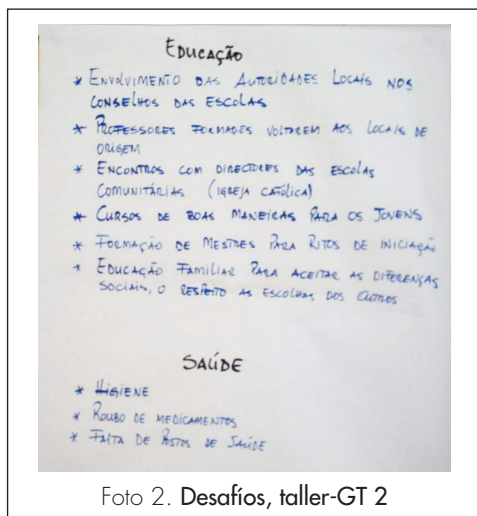 EDUCAÇÃO
* ENVOLVIMENTO DAS AUTORIDADES LOCAIS NOS
CONSELHOS DAS ESCOLAS
* PROFESSORES FORMADOS VOLTAREM AOS LOCAIS DE
ORIGEM
* ENCONTROS COM DIRECTORES DAS ESCOLAS
COMUNITÁRIAS (IGREJA CATÓLICA)
* CURSOS DE BOAS MANEIRAS PARA OS JOVENS
* FORMAÇÃO DE MESTRES PARA RITOS DE INICIAÇÃO
* EDUCAÇÃO FAMILIAR PARA ACEITAR AS DIFERENÇAS
SOCIAIS, O RESPEITO AS ESCOLHAS DOS OUTROS
SAÚDE
* HIGIENE
* ROUBO DE MEDICAMENTOS
* FALTA DE POSTOS DE SAÚDE
Foto 2. Desafíos, taller-GT 2